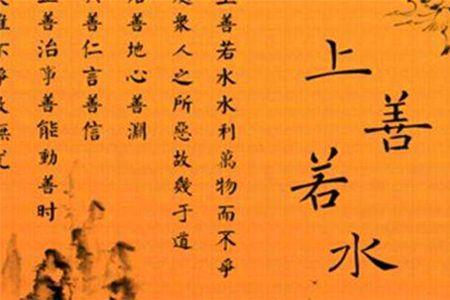 上善若水
上善若水水利萬物而不爭
處眾人之所惡故幾于道
居善地心善淵
與善仁言善信
正善治事善能動善时
唯不爭故無尤